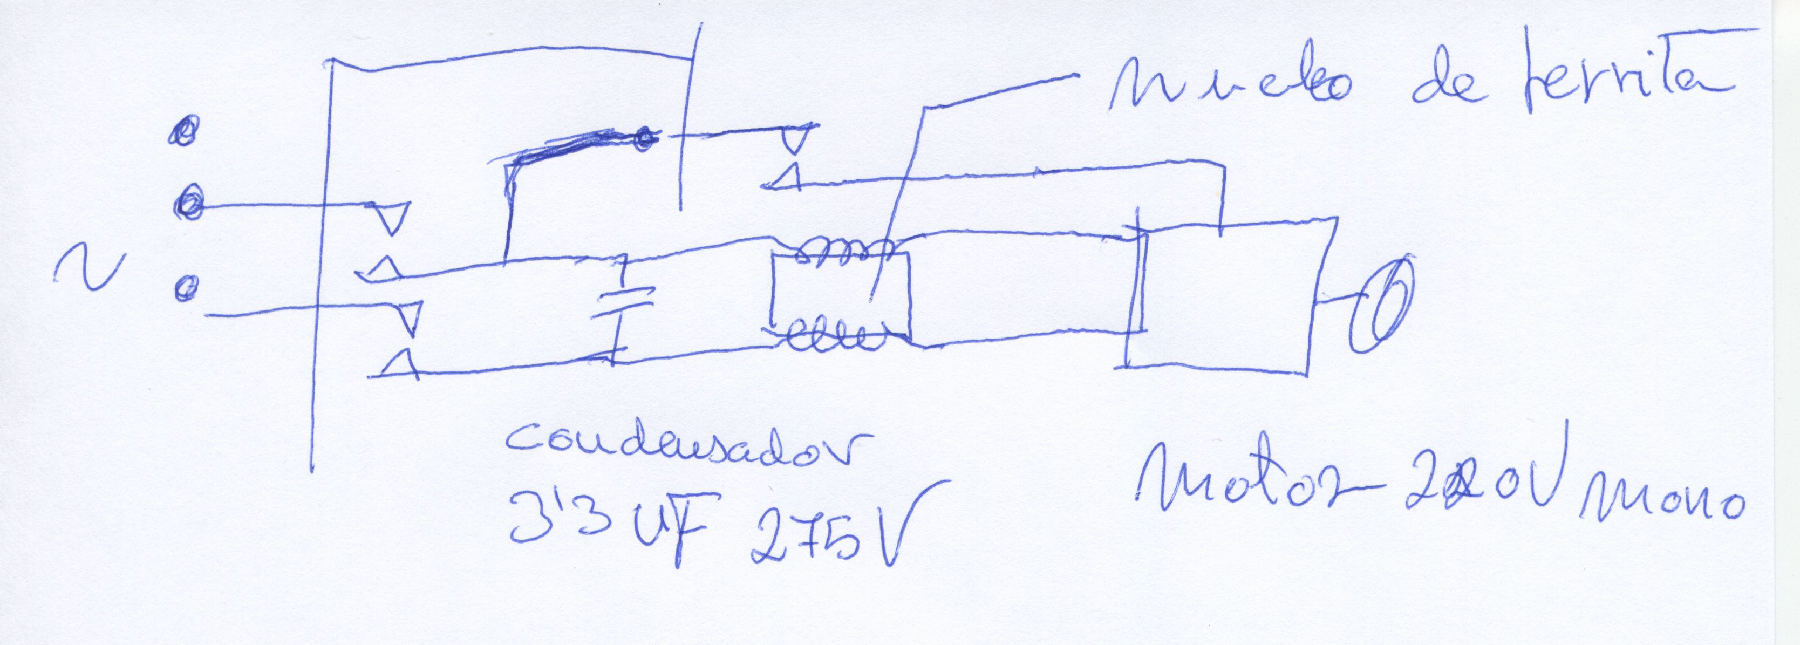 Nucleo de ferrita
∿
condensador
3'3 UF 275V
Motor 220V mono